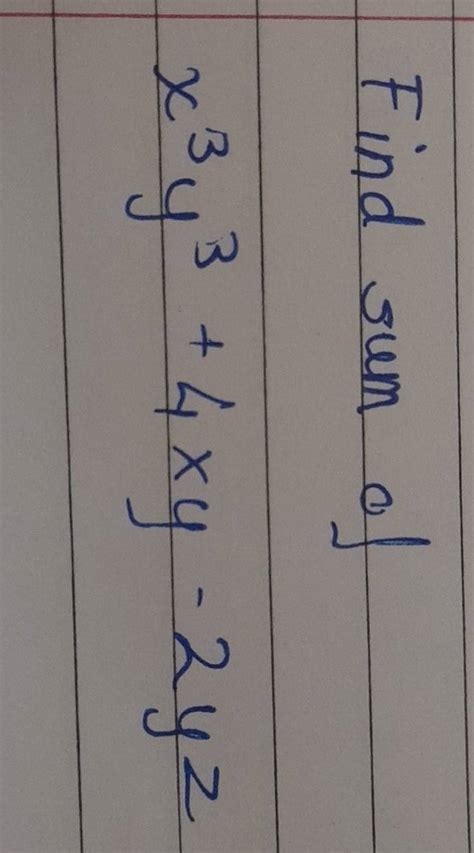 Find sum of
x³y³ + 4xy - 2yz